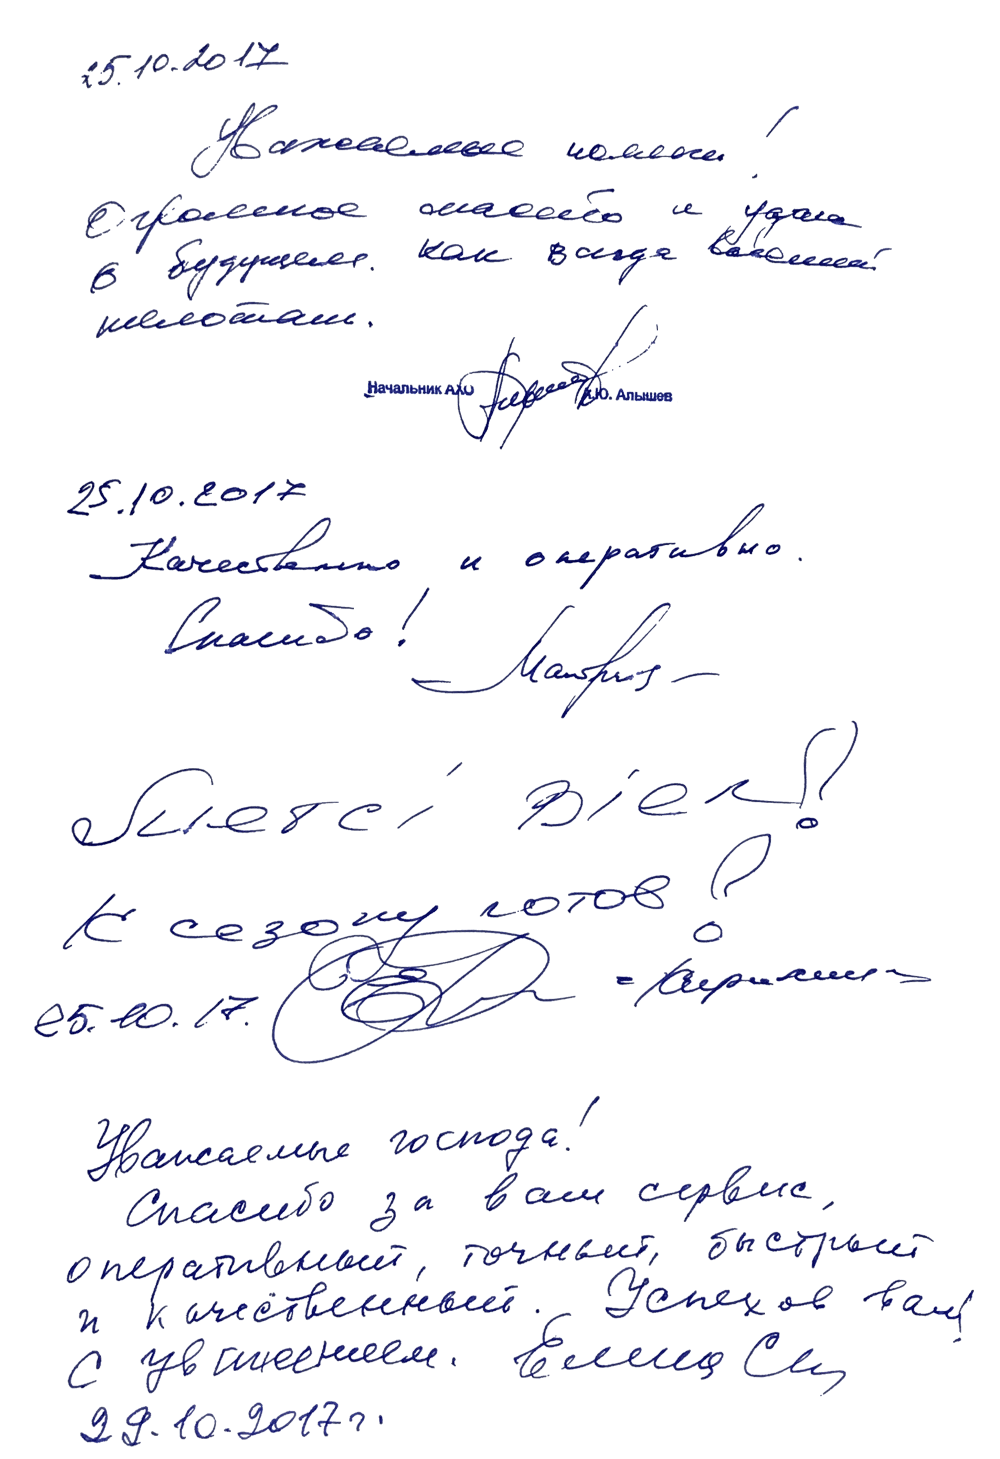 25.10.2017
Уважаемые !
Огромное спасибо и удачи
в будущем. Как всегда

Начальник АХО .Ю. Алышев
25.10.2017
Качественно и оперативно.
Спасибо!
Merci Bien!
К сезону готов!
25.10.17.
Уважаемые господа!
Спасибо за вам сервис,
оперативный, точный, быстрый
и качественный. Успехов вам!
С уважением. Елена
29.10.2017г.